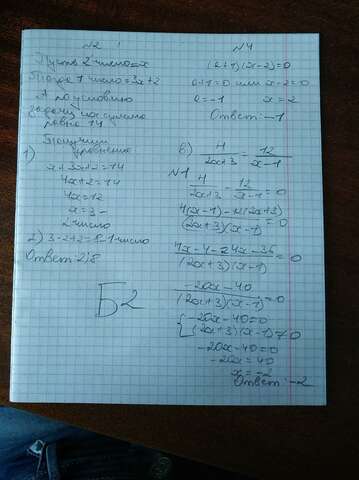 N2
Пусть 2 число = x
Тогда 1 число = 3x+2
А по условию
задачи их сумма
равна 14
Получим
уравнение
1)
x+3x+2=14
4x+2=14
4x=12
x=3 -
2 число
2) 3·2+2=8-1 число
Ответ: 2;8
Б2
N4
(x+1)(x-2)=0
x+1=0 или x-2=0
x=-1 x=2
Ответ: -1
В) 4/2x+3 = 12/x-1
N1 4/2x+3 - 12/x-1 = 0
4(x-1)-12(2x+3)/(2x+3)(x-1) = 0
4x-4-24x-36/(2x+3)(x-1) = 0
-20x-40/(2x+3)(x-1) = 0
{ -20x-40=0
(2x+3)(x-1)≠0
-20x-40=0
-20x=40
x=-2
Ответ: -2